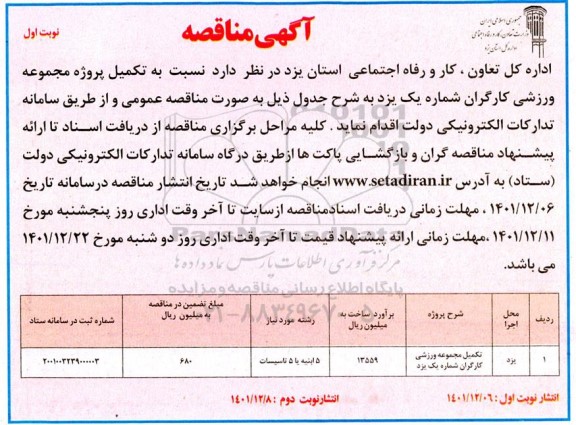 جمهوری اسلامی ایران
وزارت تعاون، کار و رفاه اجتماعی
اداره کل استان یزد
آگهی مناقصه
نوبت اول
اداره کل تعاون ، کار و رفاه اجتماعی استان یزد در نظر دارد نسبت به تکمیل پروژه مجموعه
ورزشی کارگران شماره یک یزد به شرح جدول ذیل به صورت مناقصه عمومی و از طریق سامانه
تدارکات الکترونیکی دولت اقدام نماید . کلیه مراحل برگزاری مناقصه از دریافت اسناد تا ارائه
پیشنهاد مناقصه گران و بازگشایی پاکت ها ازطریق درگاه سامانه تدارکات الکترونیکی دولت
(ستاد) به آدرس www.setadiran.ir انجام خواهد شد تاریخ انتشار مناقصه درسامانه تاریخ
۱۴۰۱/۱۲/۰۶ ، مهلت زمانی دریافت اسنادمناقصه ازسایت تا آخر وقت اداری روز پنجشنبه مورخ
۱۴۰۱/۱۲/۱۱ ،مهلت زمانی ارائه پیشنهاد قیمت تا آخر وقت اداری روز دو شنبه مورخ ۱۴۰۱/۱۲/۲۲
می باشد.
ParsNamadData
مرکز فرآوری اطلاعات پارس نماد داده ها
پایگاه اطلاع رسانی مناقصه و مزایده
ردیف
محل اجرا
شرح پروژه
برآورد ساخت به: میلیون ریال
رشته مورد نیاز
مبلغ تضمین در مناقصه به میلیون ریال
شماره ثبت در سامانه ستاد
۱
یزد
تکمیل مجموعه ورزشی کارگران شماره یک یزد
۱۳۵۵۹
۵ ابنیه یا ۵ تاسیسات
۶۸۰
۲۰۰۱۰۰۳۲۳۹۰۰۰۰۰۳
انتشار نوبت اول : ۱۴۰۱/۱۲/۰۶
انتشارنوبت دوم : ۱۴۰۱/۱۲/۸